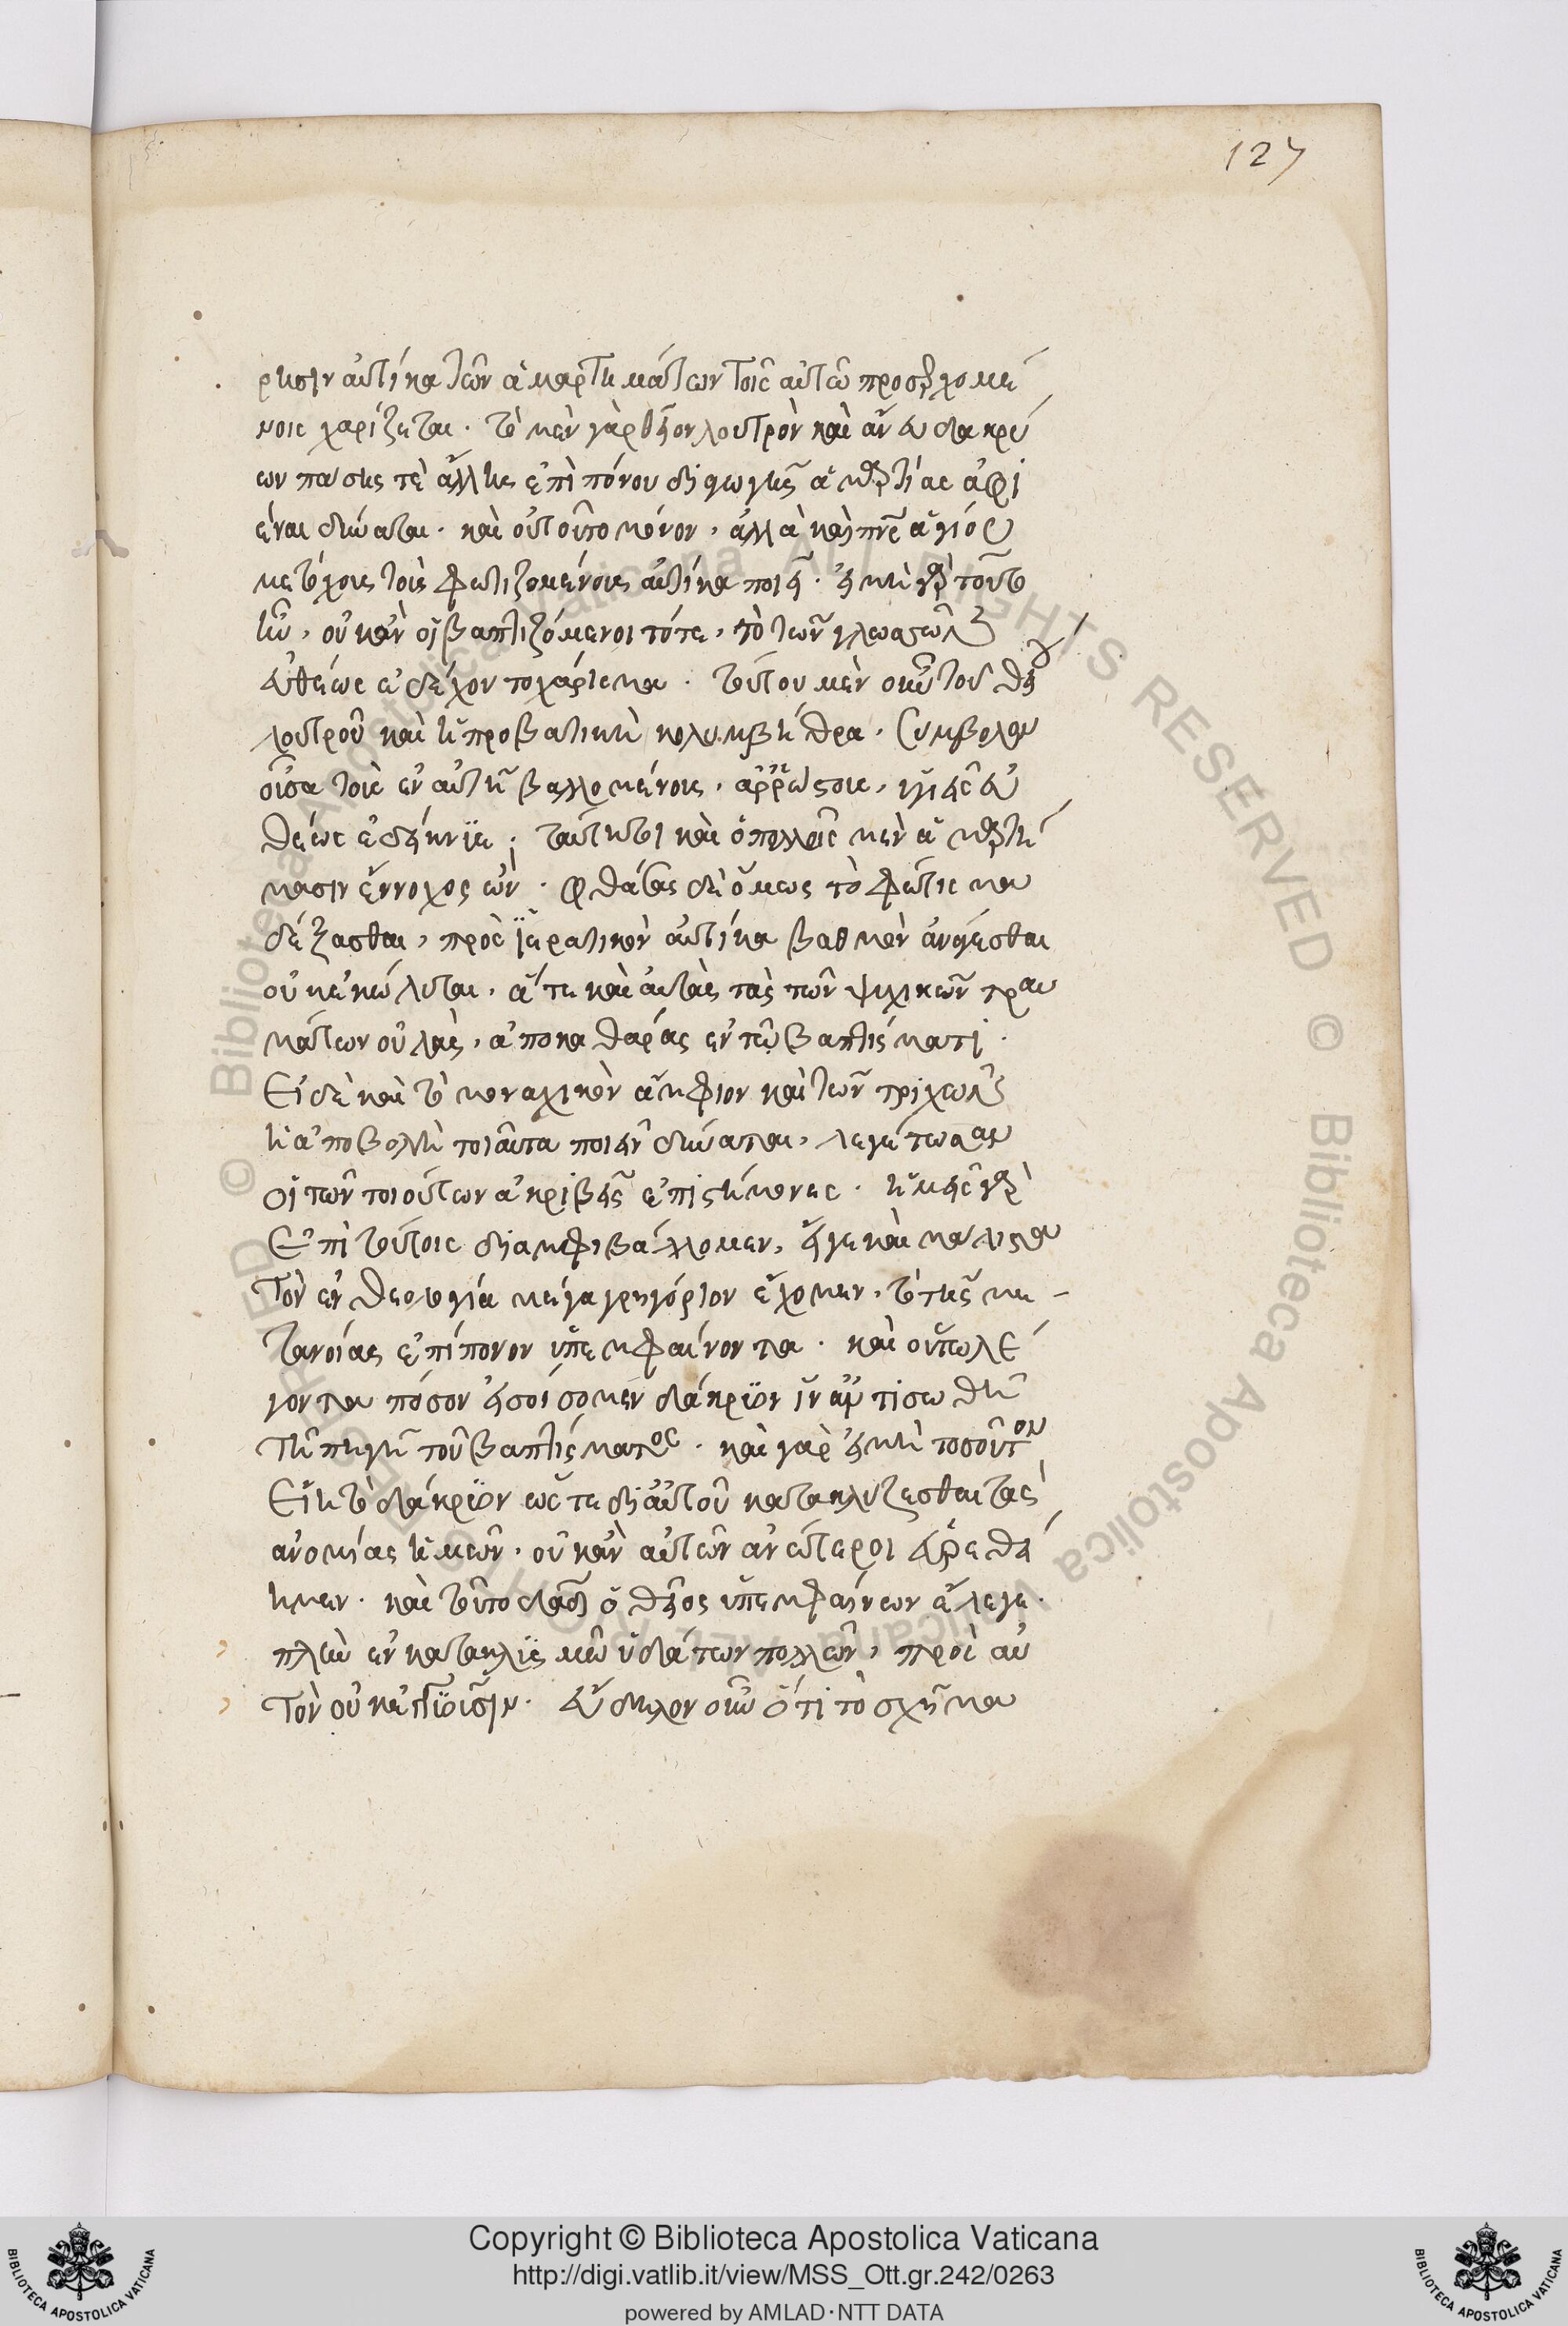 127
ρησιν αὐτίκα τῶν ἁμαρτημάτων τοῖς αὐτῶ προσερχομέ
νοις χαρίζεται. τὸ μὲν γὰρ θεῖον λουτρὸν καὶ ἄνευ δακρύ
ων πάσης τὲ ἄλλης ἐπιπόνου διαγωγῆς ἁμαρτίας ἀφι
έναι δύναται. καὶ οὐ τοῦτο μόνον, ἀλλὰ καὶ πνς ἁγίου
μετόχους τοὺς φωτιζομένους αὐτίκα ποιεῖ. εἰ μὴ γὰρ τοῦτο
ἦν, οὐκ ἂν οἱ βαπτιζόμενοι τότε, τὸ τῶν γλωσσῶν
εὐθέως ἐδέχοντο χάρισμα. τούτου μὲν οὖν τοῦ θείου
λουτροῦ καὶ ἡ προβατικὴ κολυμβήθρα, σύμβολον
οὖσα τοὺς ἐν αὐτῆ βαλλομένους, ἀρρώστους, ὑγιεῖς εὐ
θέως ἐδείκνυε. ταύτητοι καὶ ὁ πολλοῖς μὲν ἁμαρτή
μασιν ἔνοχος ὢν. φθάσας δὲ ὅμως τὸ φώτισμα
δέξασθαι, πρὸς ἱερατικὸν αὐτίκα βαθμὸν ἀνάγεσθαι
οὐ κεκώλυται, ἅτε καὶ αὐτὰς τὰς τῶν ψυχικῶν τραυ
μάτων οὐλὰς, ἀποκαθάρας ἐν τῶ βαπτίσματι.
Εἰ δὲ καὶ τὸ μοναχικὸν ἄμφιον καὶ τῶν τριχῶν
ἡ ἀποβολὴ τοιαῦτα ποιεῖν δύναται, λεγέτωσαν
οἱ τῶν τοιούτων ἀκριβεῖς ἐπιστήμονες. ἡμεῖς γὰρ
Ἐπὶ τούτοις διαμφιβάλλομεν, εἴγε καὶ μάλιστα
Τὸν ἐν θεολογία μέγα γρηγόριον ἔχομεν, τὸ τῆς με
τανοίας ἐπίπονον ὑπεμφαίνοντα. καὶ οὕτω λέ
γοντα πόσον εἰσοίσομεν δάκρυον ἵν' ἀντισωθῆ
Τῆ πηγῆ τοῦ βαπτίσματος. καὶ γὰρ εἰ μὴ τοσοῦτον
Εἴη τὸ δάκρυον ὥστε δι' αὐτοῦ κατακλύζεσθαι τὰς
ἀνομίας ἡμῶν, οὐκ ἂν αὐτῶν ἀνώτεροι εὑρεθεί
ημεν. καὶ τοῦτο δαδ ὁ θεῖος ὑπεμφαίνων ἔλεγε.
πλὴν ἐν κατακλυσμῶ ὑδάτων πολλῶν, πρὸς αὐ
Τὸν οὐκ ἐγγιοῦσιν. εὔδηλον οὖν ὅτι τὸ σχῆμα
Copyright © Biblioteca Apostolica Vaticana
http://digi.vatlib.it/view/MSS_Ott.gr.242/0263
powered by AMLAD·NTT DATA